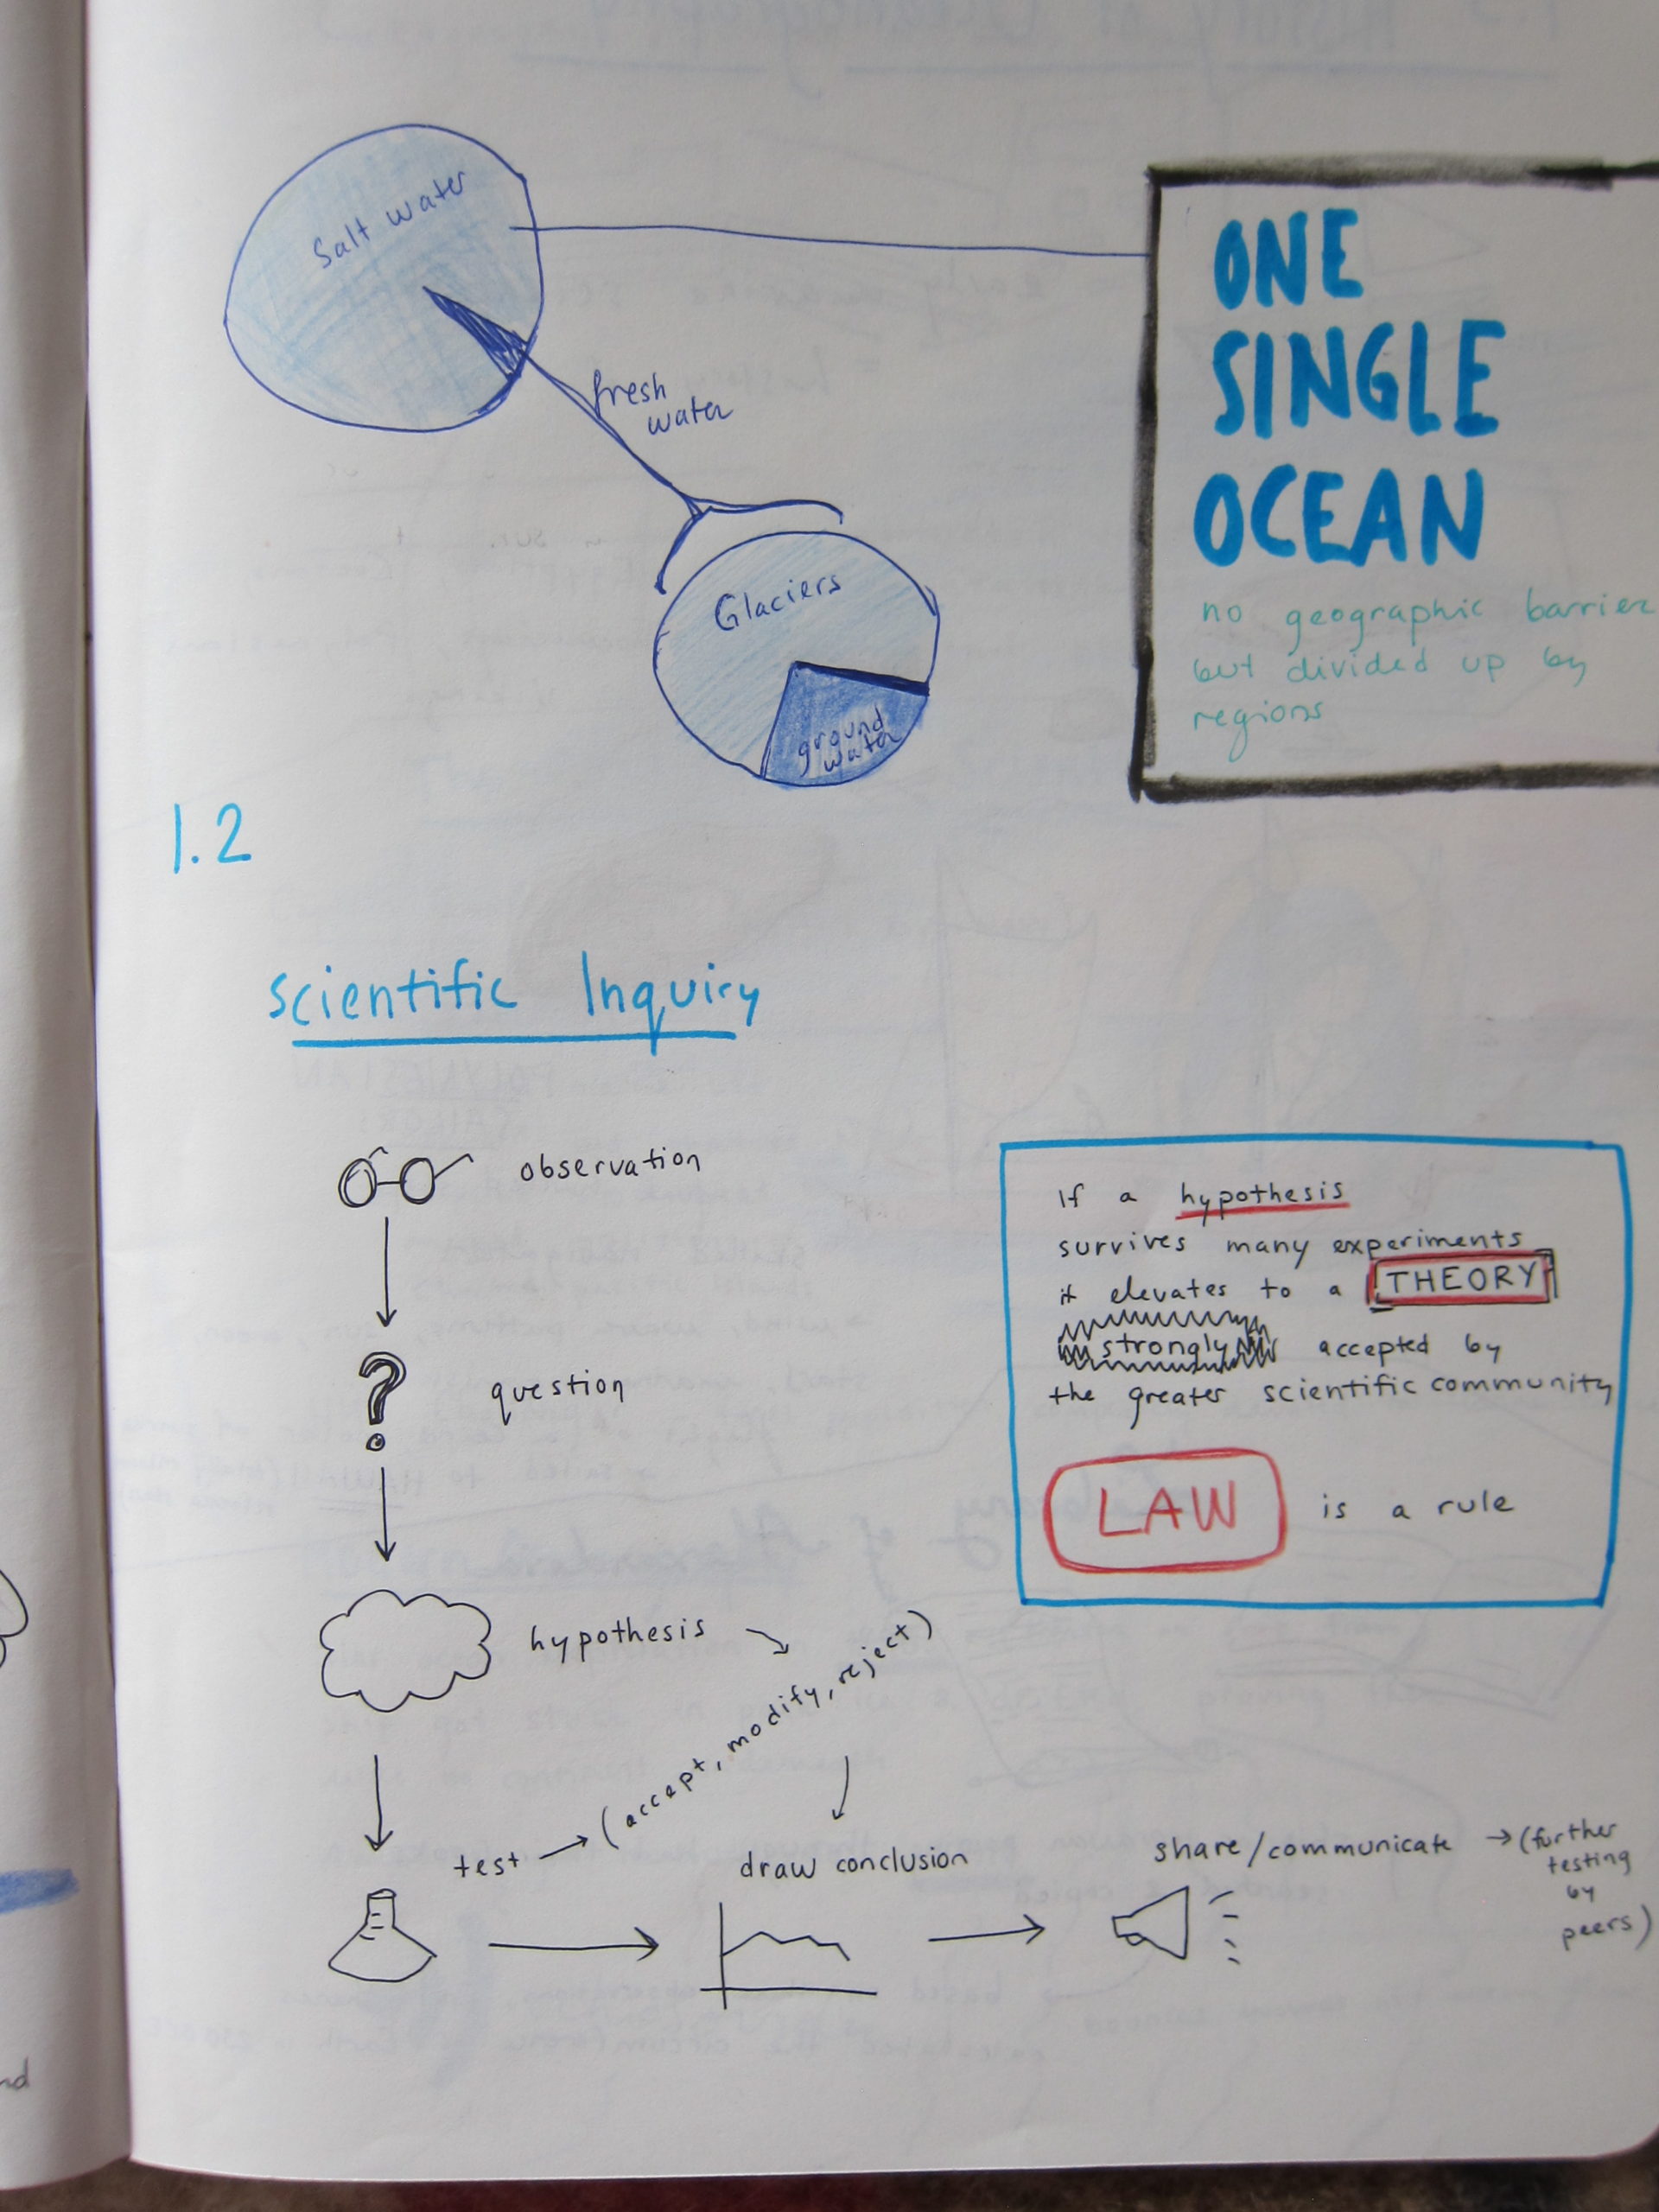 Salt water
fresh
water
Glaciers
ground
water
ONE
SINGLE
OCEAN
no geographic barrier
but divided up by
regions
1.2
Scientific Inquiry
observation
question
hypothesis
(accept, modify, reject)
test
draw conclusion
share/communicate → (further
testing
by
peers)
If a hypothesis
survives many experiments
it elevates to a THEORY
strongly accepted by
the greater scientific community
LAW is a rule